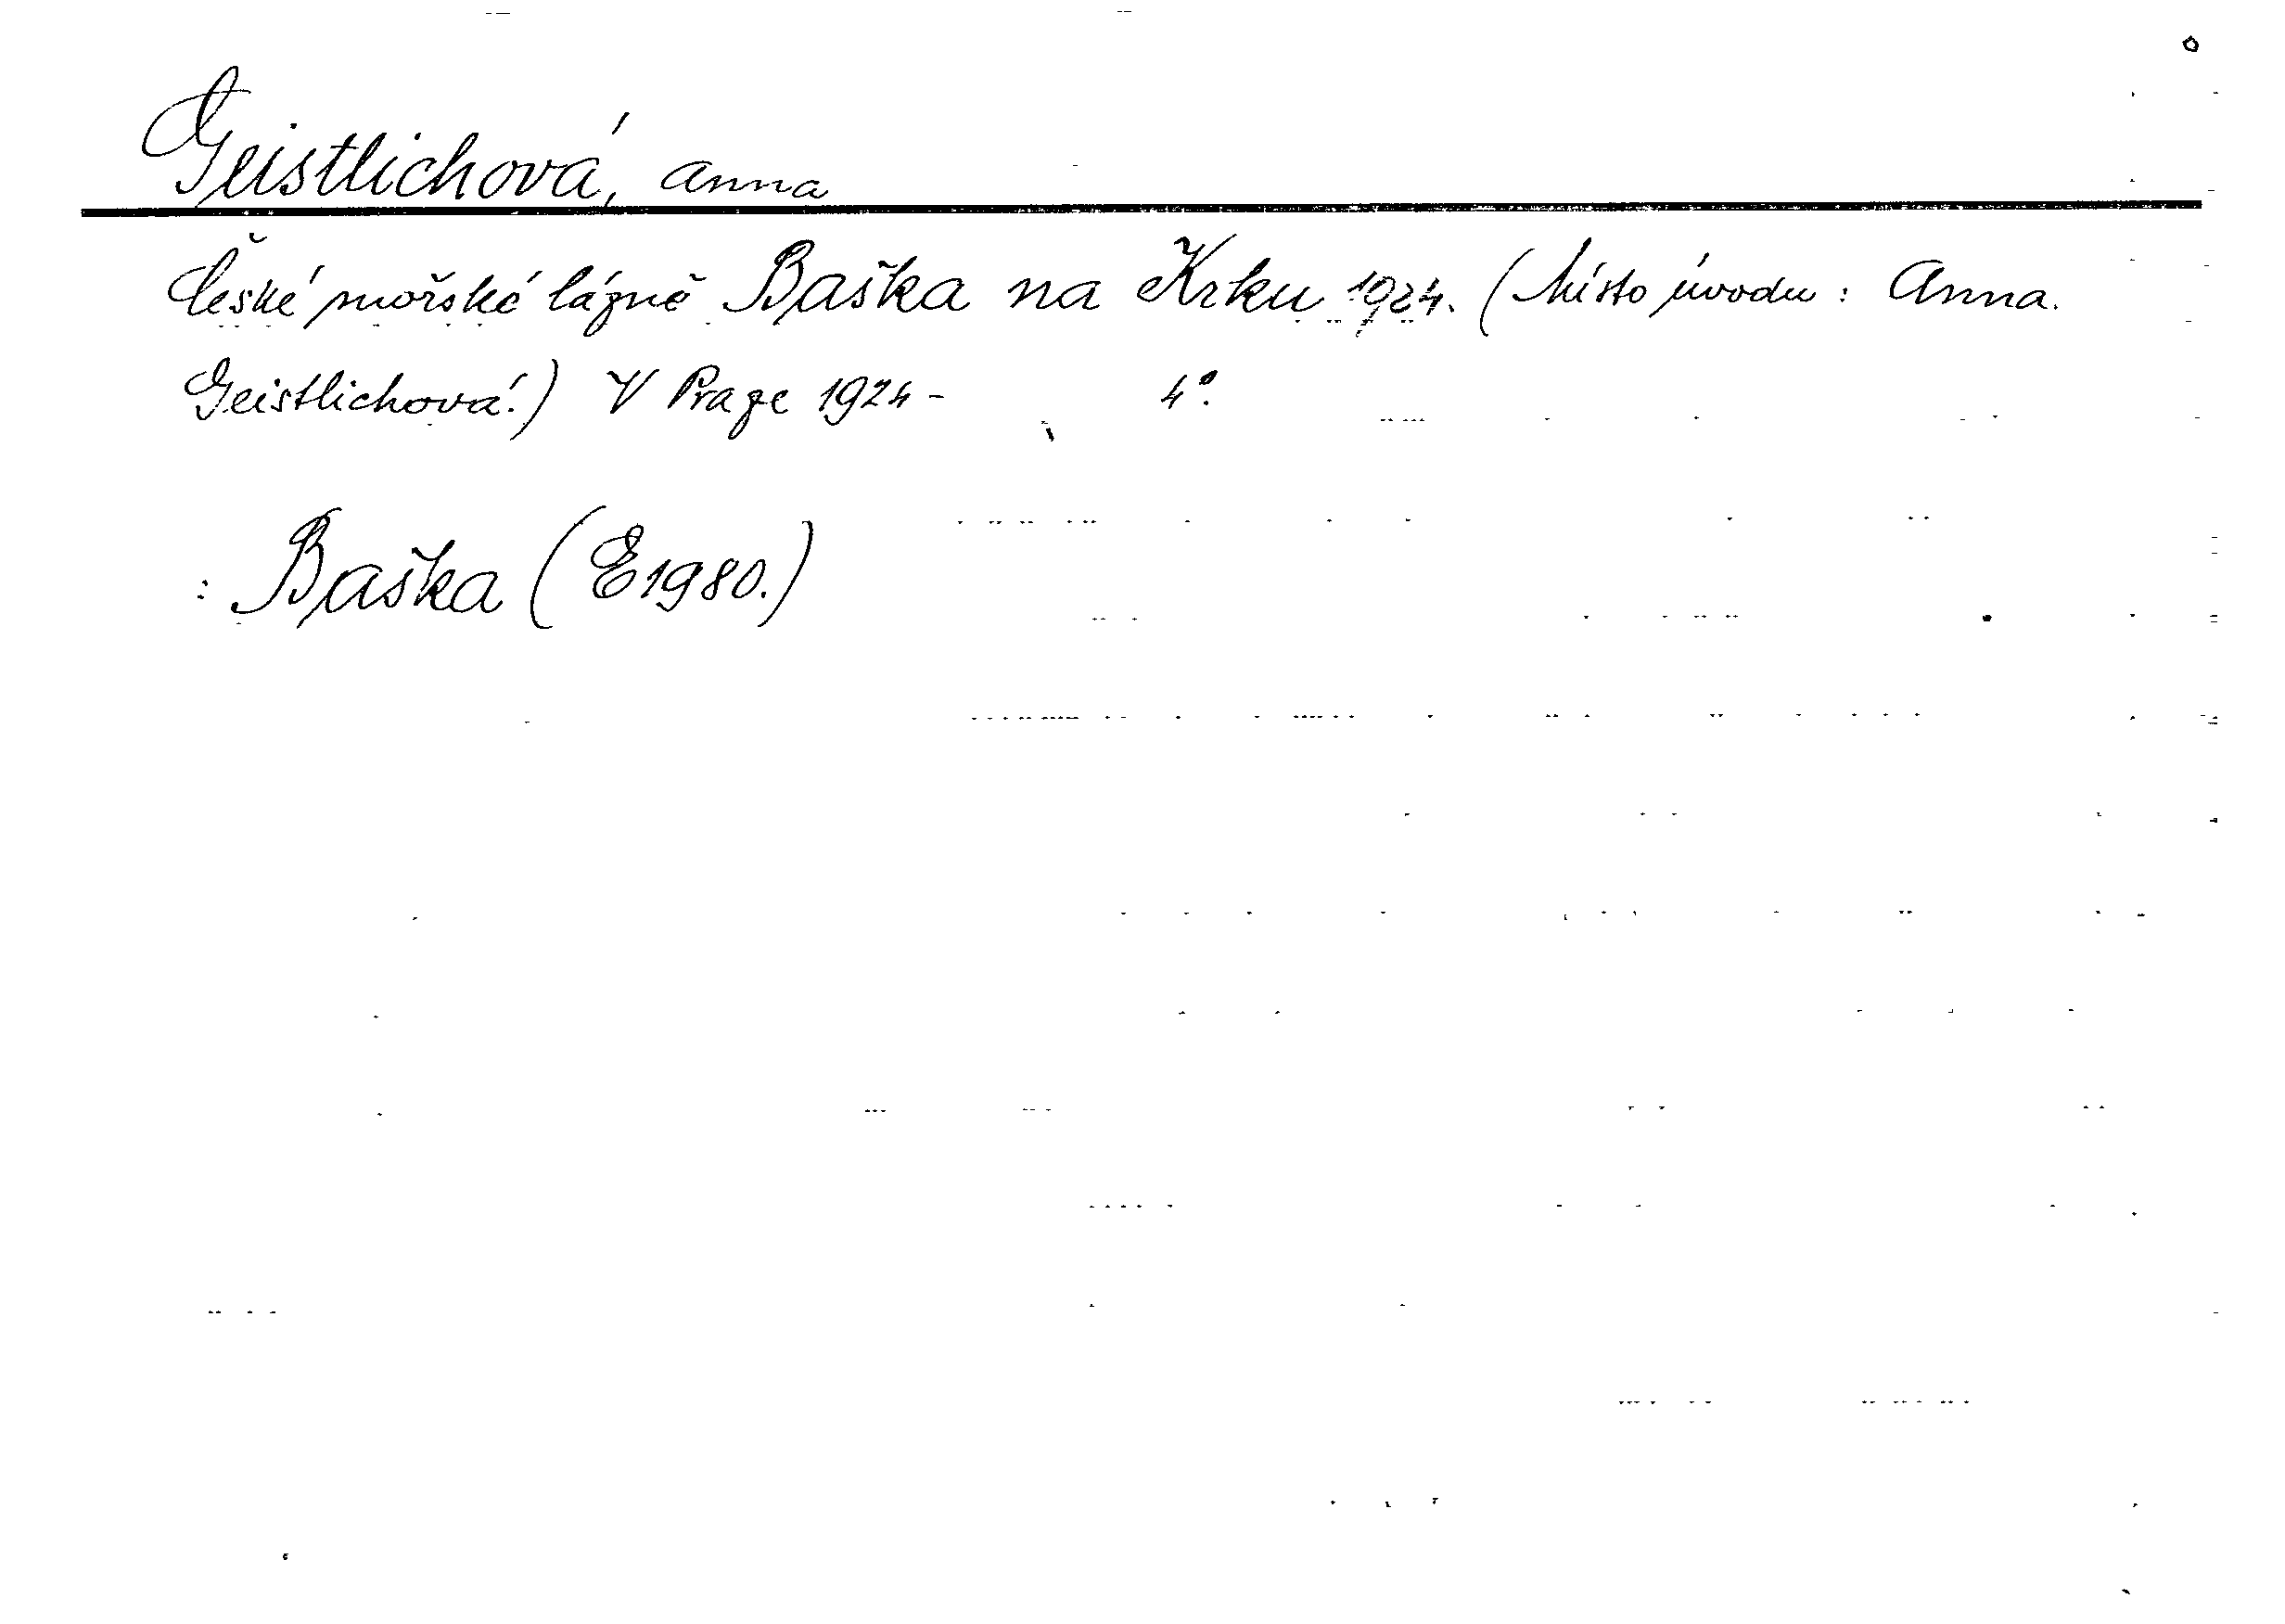 Geistlichová, Anna
České mořské lázně Baška na Krku 1924. (Místo úvodu: Anna.
Geistlichová.) V Praze 1924 - 4°.
: Baška (E1980.)